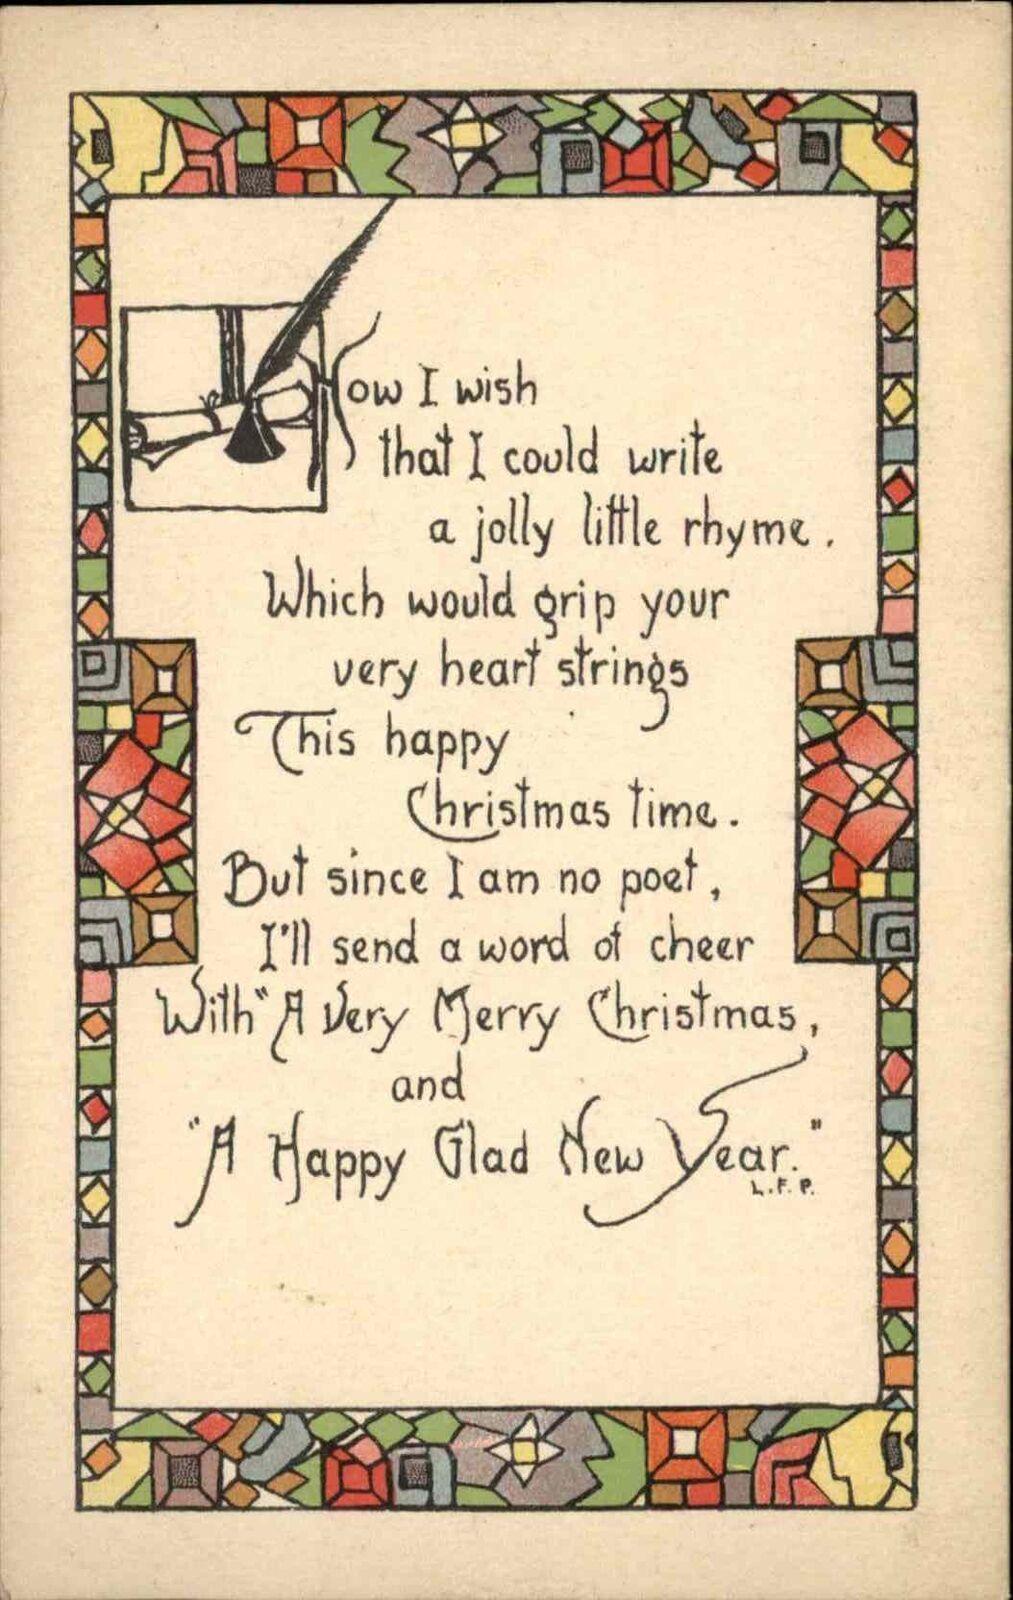 How I wish
that I could write
a jolly little rhyme.
Which would grip your
very heart strings
This happy
Christmas time.
But since I am no poet,
I'll send a word of cheer
With "A Very Merry Christmas,
and
"A Happy Glad New Year."
L.F.P.